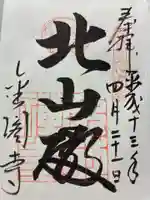 奉拝
平成十三年
四月二十一日
北山殿
金閣寺